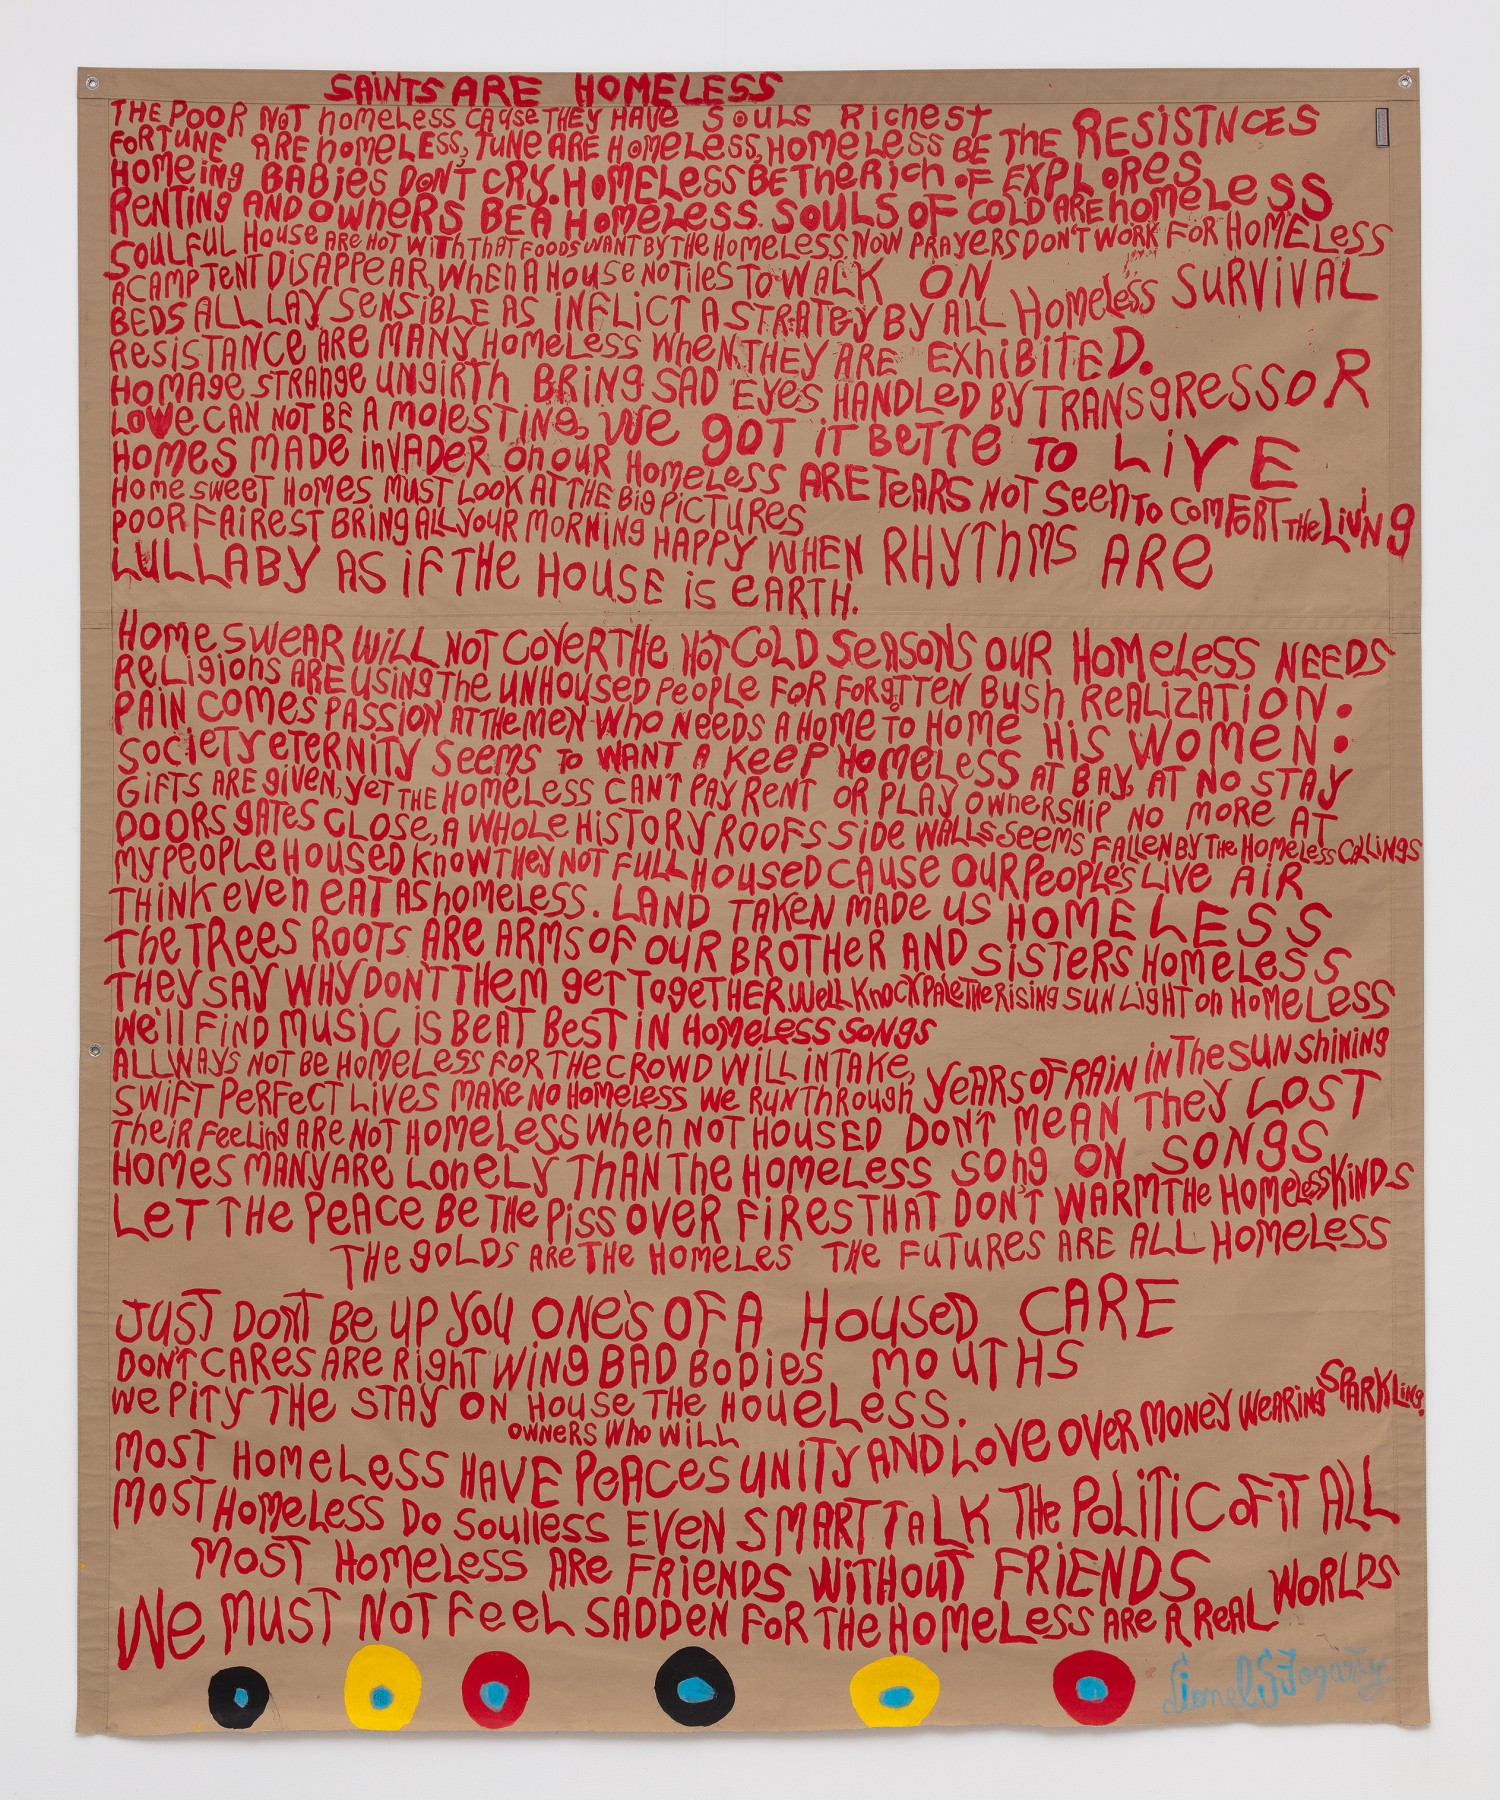 SAiNTS ARE HOMELESS
THE POOR NOT homeLess CAUSE THEY HAVE SOULS RicHest
FORTUNE ARE homeLESS, TUNE ARE HOMELESS, HOMELESS BE THE RESISTNCES
HOMEing BABies DON'T CRY. HOMELESS BE THERICH OF EXPLORES
RENTING AND OWNERS BE A HOMELESS. SOULS OF COLD ARE homeLess
SOULFUL House ARE HOT WITH THAT FOODS WANT BY THE HOMELESS, NOW PRAYERS DON'T WORK FOR HOMELESS
A CAMP TENT DISAPPEAR, WHEN A HOUSE NO TILES TO WALK ON
BEDS ALL LAY SENSIBLE AS INFLICT A STRATEGY BY ALL HOMELESS SURVIVAL
RESISTANCE ARE MANY HOMELESS WHEN THEY ARE EXHIBITED.
HOMAGE STRANGE UNGIRTH BRING SAD EYES HANDLED BY TRANSGRESSOR
LOVE CAN NOT BE A MOLESTING, WE GOT IT BETTE TO LIVE
HOMES MADE INVADER ON OUR HOMELESS ARE TEARS NOT SEEN TO COMFORT THE LIVING
HOME SWEET HOMES MUST LOOK AT THE BIG PICTURES
POOR FAIREST BRING ALL YOUR MORNING HAPPY WHEN RHYTHMS ARE
LULLABY AS IF THE HOUSE IS EARTH.
HOME SWEAR WILL NOT COVER THE HOT COLD SEASONS OUR HOMELESS NEEDS
RELIGIONS ARE USING THE UNHOUSED PEOPLE FOR FORGOTTEN BUSH REALIZATION.
PAIN COMES PASSION AT THE MEN WHO NEEDS A HOME TO HOME HIS WOMEN.
SOCIETY ETERNITY SEEMS TO WANT A KEEP HOMELESS AT BAY, AT NO STAY
GIFTS ARE GIVEN, YET THE HOMELESS CAN'T PAY RENT OR PLAY OWNERSHIP NO MORE AT
DOORS GATES CLOSE, A WHOLE HISTORY ROOFS SIDE WALLS SEEMS FALLEN BY THE HOMELESS CALLINGS
MY PEOPLE HOUSED KNOW THEY NOT FULL HOUSED CAUSE OUR PEOPLE'S LIVE AIR
THINK EVEN EAT AS HOMELESS. LAND TAKEN MADE US HOMELESS
THE TREES ROOTS ARE ARMS OF OUR BROTHER AND SISTERS HOMELESS
THEY SAY WHY DON'T THEM GET TOGETHER. WELL KNOCK PALE THE RISING SUN LIGHT ON HOMELESS
WE'LL FIND MUSIC IS BEAT BEST IN HOMELESS SONGS
ALLWAYS NOT BE HOMELESS FOR THE CROWD WILL INTAKE, YEARS OF RAIN IN THE SUN SHINING
SWIFT PERFECT LIVES MAKE NO HOMELESS WE RUN THROUGH
THEIR FEELING ARE NOT HOMELESS WHEN NOT HOUSED DON'T MEAN THEY LOST
HOMES MANY ARE LONELY THAN THE HOMELESS SONG ON SONGS
LET THE PEACE BE THE PISS OVER FIRES THAT DON'T WARM THE HOMELESS KINDS
THE GOLDS ARE THE HOMELES THE FUTURES ARE ALL HOMELESS
JUST DON'T BE UP YOU ONE'S OF A HOUSED CARE
DON'T CARES ARE RIGHT WING BAD BODIES MOUTHS
WE PITY THE STAY ON HOUSE THE HOUELESS.
OWNERS WHO WILL
MOST HOMELESS HAVE PEACES UNITY AND LOVE OVER MONEY WEARING SPARKLING.
MOST HOMELESS DO SOULLESS EVEN SMART TALK THE POLITIC OF IT ALL
MOST HOMELESS ARE FRIENDS WITHOUT FRIENDS
WE MUST NOT FEEL SADDEN FOR THE HOMELESS ARE A REAL WORLDS
Lionel G Fogarty